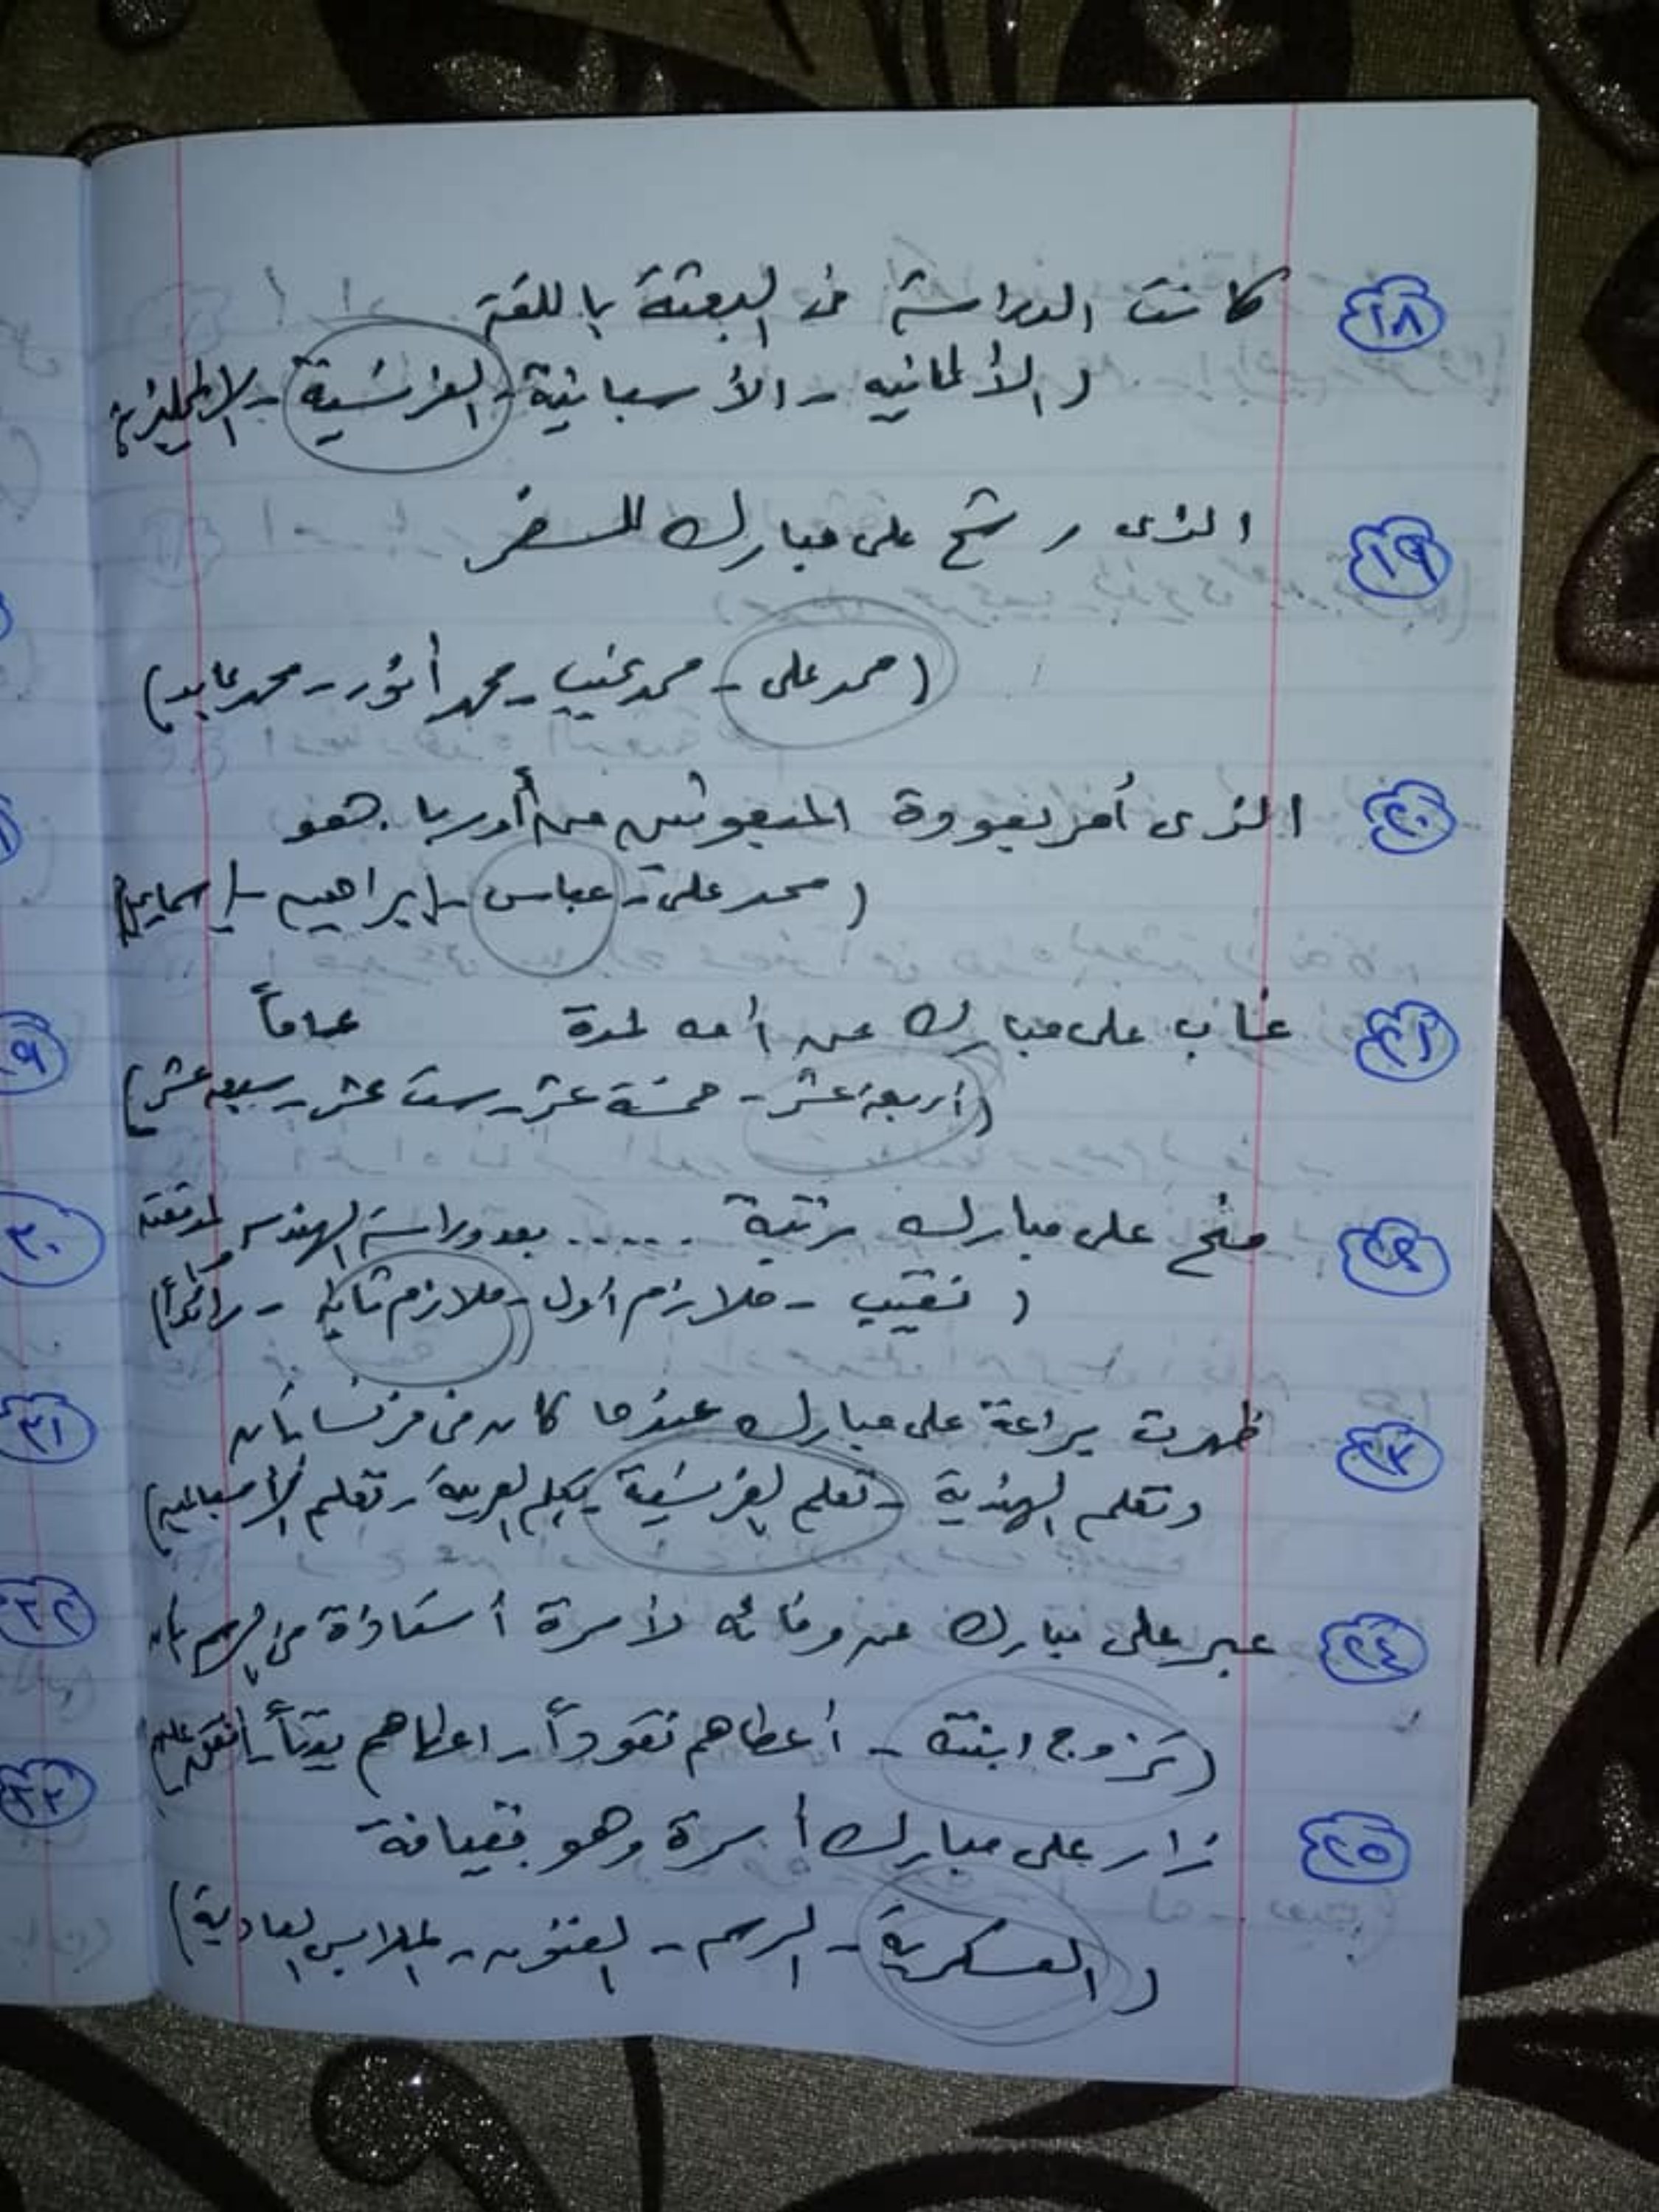 ١٨ كانت الدراسة فى البعثة باللغة
( الألمانيه - الأسبانية - الفرنسية - الإنجليزية
١٩ الذى رشح على مبارك للسفر
( محمد على - محمد نجيب - محمد أنور - محمد عابد )
٢٠ الذى أمر بعودة المبعوثين من أوربا هو
( محمد على - عباس - إبراهيم - إسماعيل )
٢١ غاب على مبارك عن أمه لمدة عاماً
( أربعة عشر - خمسة عشر - ست عشر - سبعه عشر )
٢٢ منح على مبارك رتبة ...... بعد دراسته الهندسه
( نقيب - ملازم أول - ملازم ثانى - رائداً )
٢٣ ظهرت براعة على مبارك عندما كان فى فرنسا بأن
( تعلم الهندية - تعلم الفرنسية - تكلم العربية - تعلم الأسبانيه )
٢٤ عبر على مبارك عن وفائه لأسرة أستاذة فى الرسم بأن
( تزوج ابنتة - أعطاهم نقوداً - اعطاهم بيتاً - أنفق عليهم )
٢٥ زار على مبارك أسرة وهو بقيافة
( العسكرية - الرسم - الفنون - الملابس العادية )
٩
٣٠
٣١
٣٢
٣٣